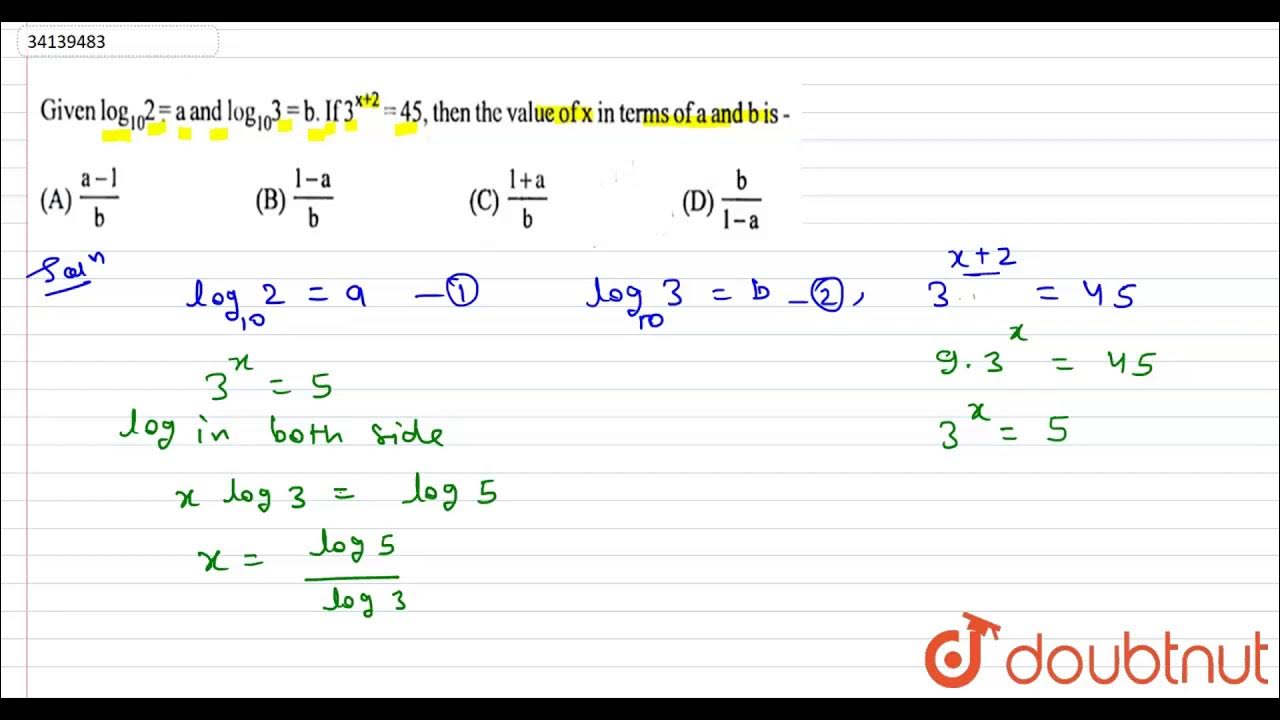 34139483
Given log₁₀2 = a and log₁₀3 = b. If 3ˣ⁺² = 45, then the value of x in terms of a and b is -
(A) (a-1)/b (B) (1-a)/b (C) (1+a)/b (D) b/(1-a)
Solⁿ
log₁₀ 2 = a — ① log₁₀ 3 = b – ②, 3ˣ⁺² = 45
9.3ˣ = 45
3ˣ = 5
3ˣ = 5
log in both side
x log 3 = log 5
x = log 5 / log 3
doubtnut